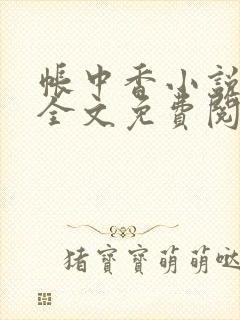 帳中香小說
全文免費閱
猪寶寶萌萌噠